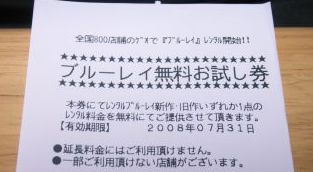 全国800店舗のゲオで『ブルーレイ』レンタル開始!!
★★★★★★★★★★★★★★★★★★★★★★★★
ブルーレイ無料お試し券
★★★★★★★★★★★★★★★★★★★★★★★★
本券にてレンタルブルーレイ新作・旧作いずれか1点の
レンタル料金を無料にてご提供させて頂きます。
【有効期限】 2008年07月31日
●延長料金にはご利用頂けません。
●一部ご利用頂けない店舗がございます。